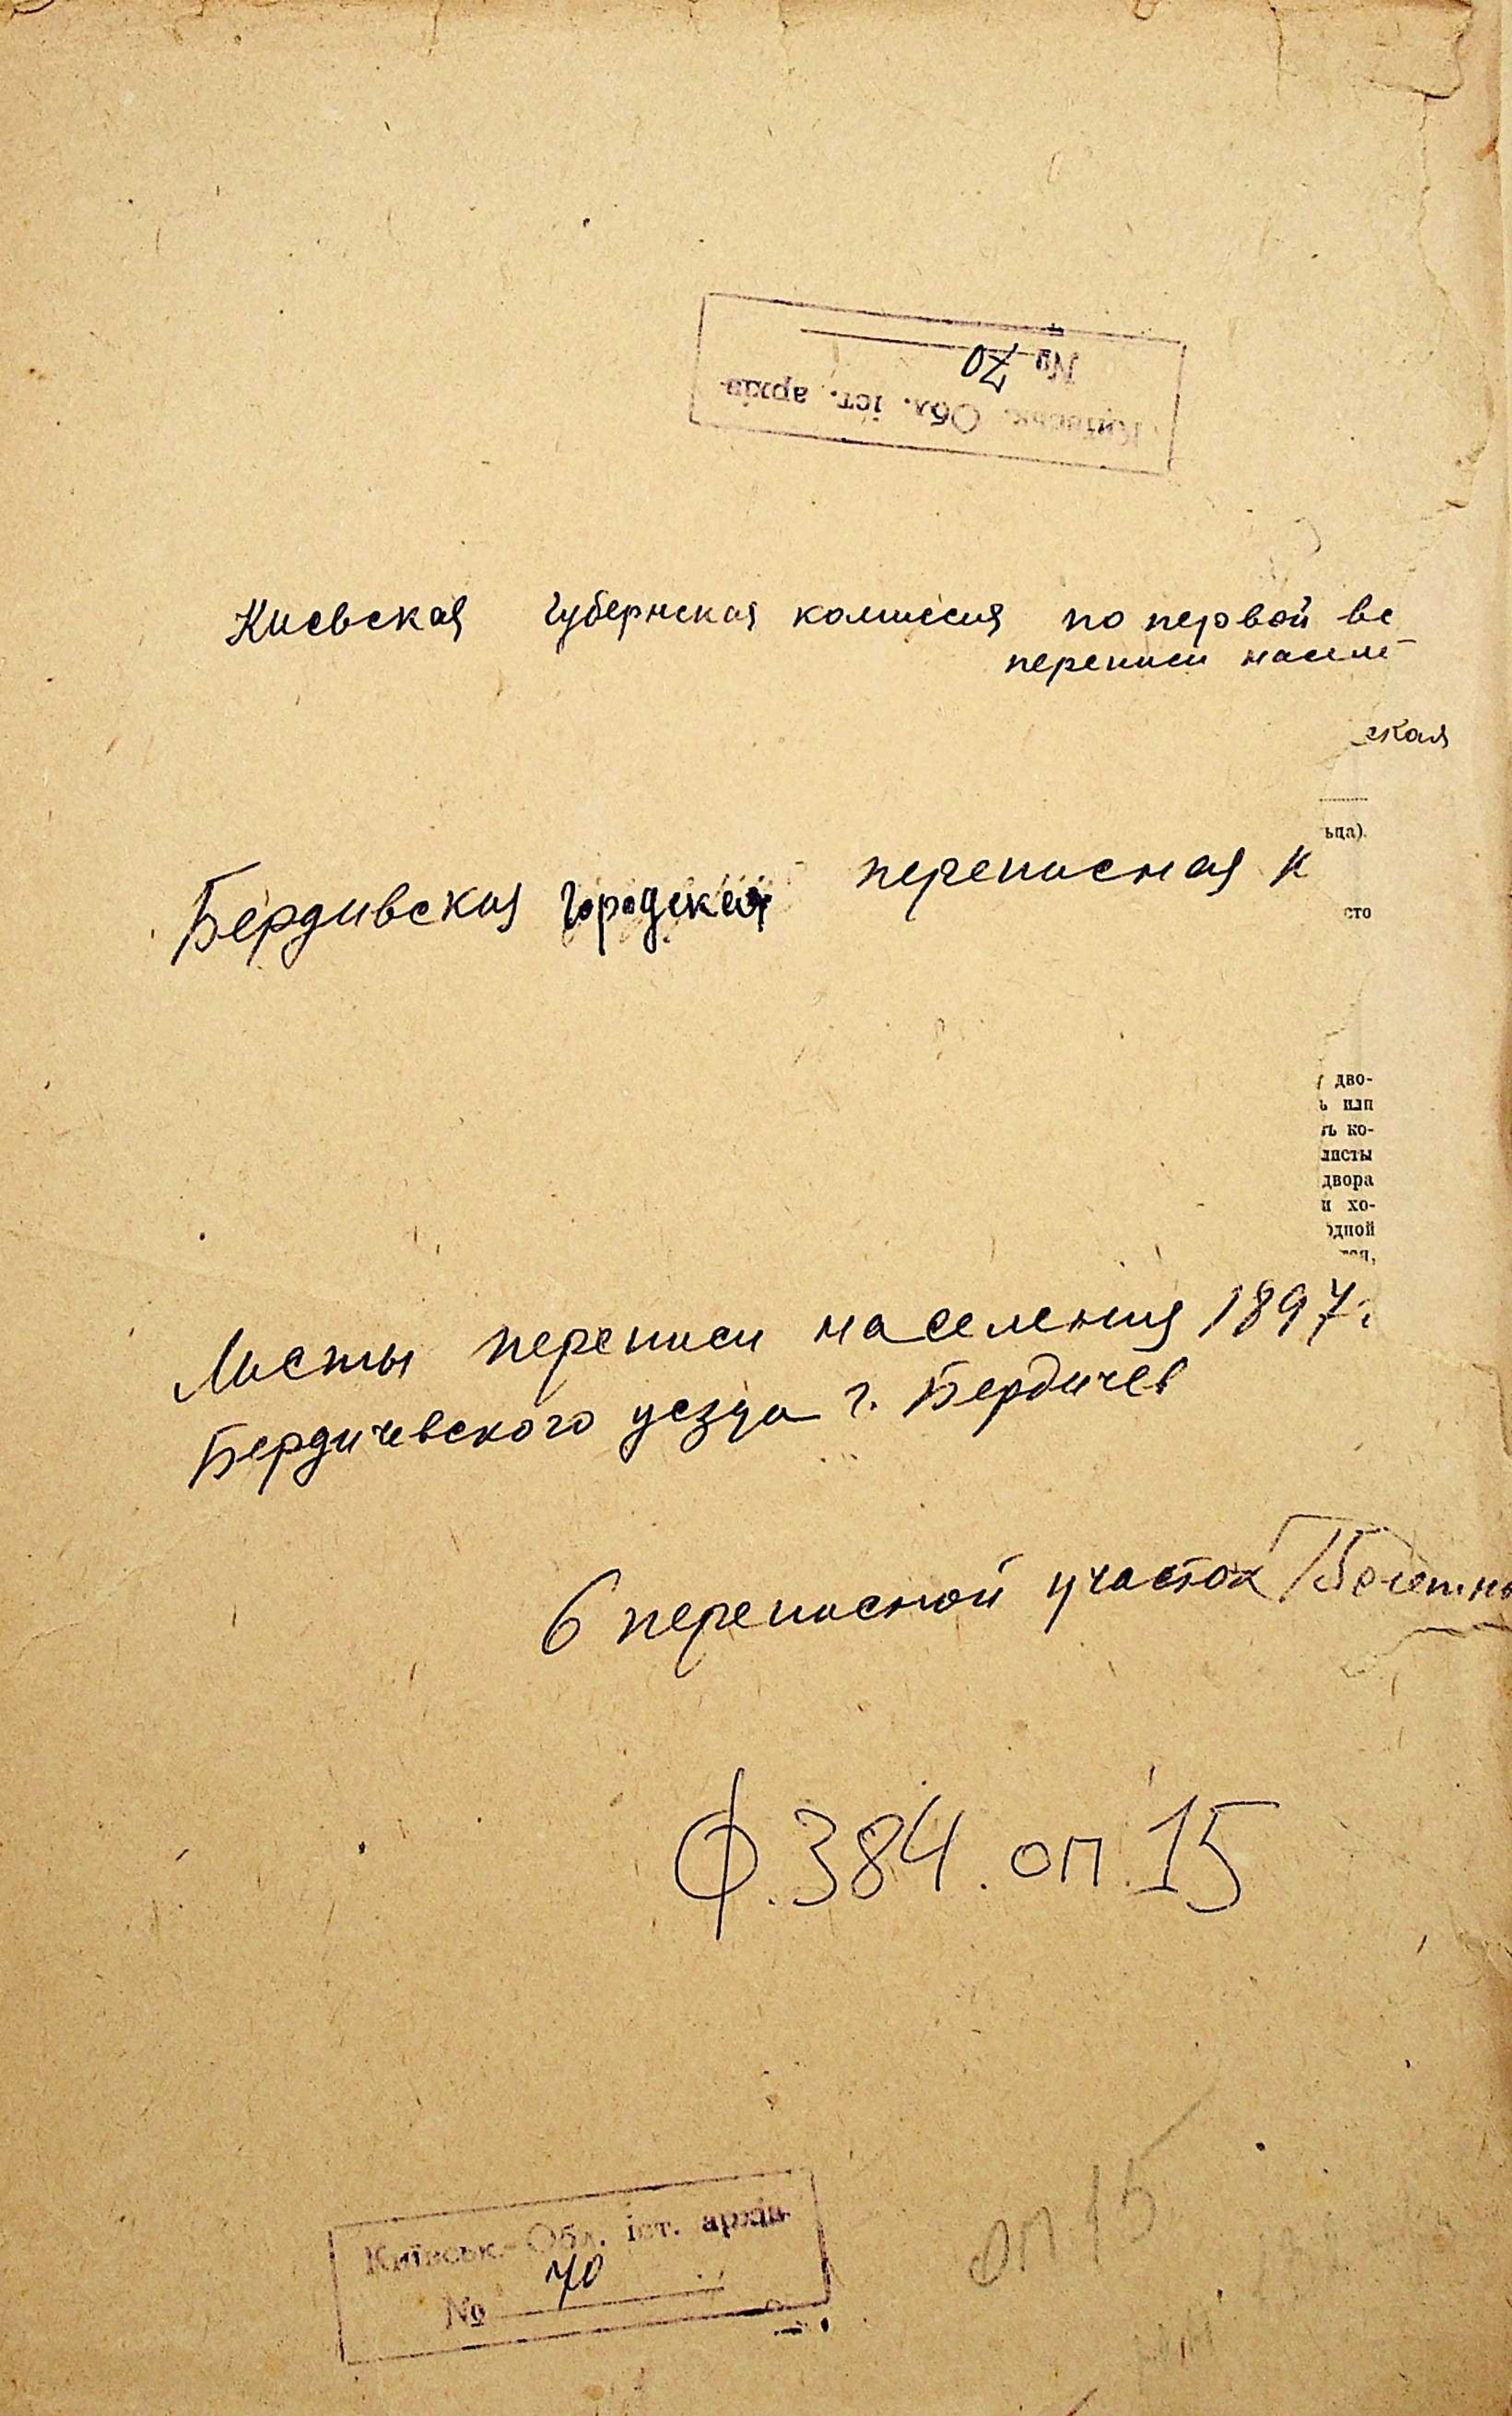 № 70
Київськ. Обл. іст. архів
Киевская губернская комиссия по первой вс
переписи населе
ская
ьца).
Бердивская городская переписная к
сто
дво-
ь или
ть ко-
листы
двора
и хо-
одной
Листы переписи населения 1897 г.
Бердичевского уезда г. Бердичев
6 переписной участок
Ф. 384. оп. 15
оп 15
Київськ. Обл. іст. архів
№ 70